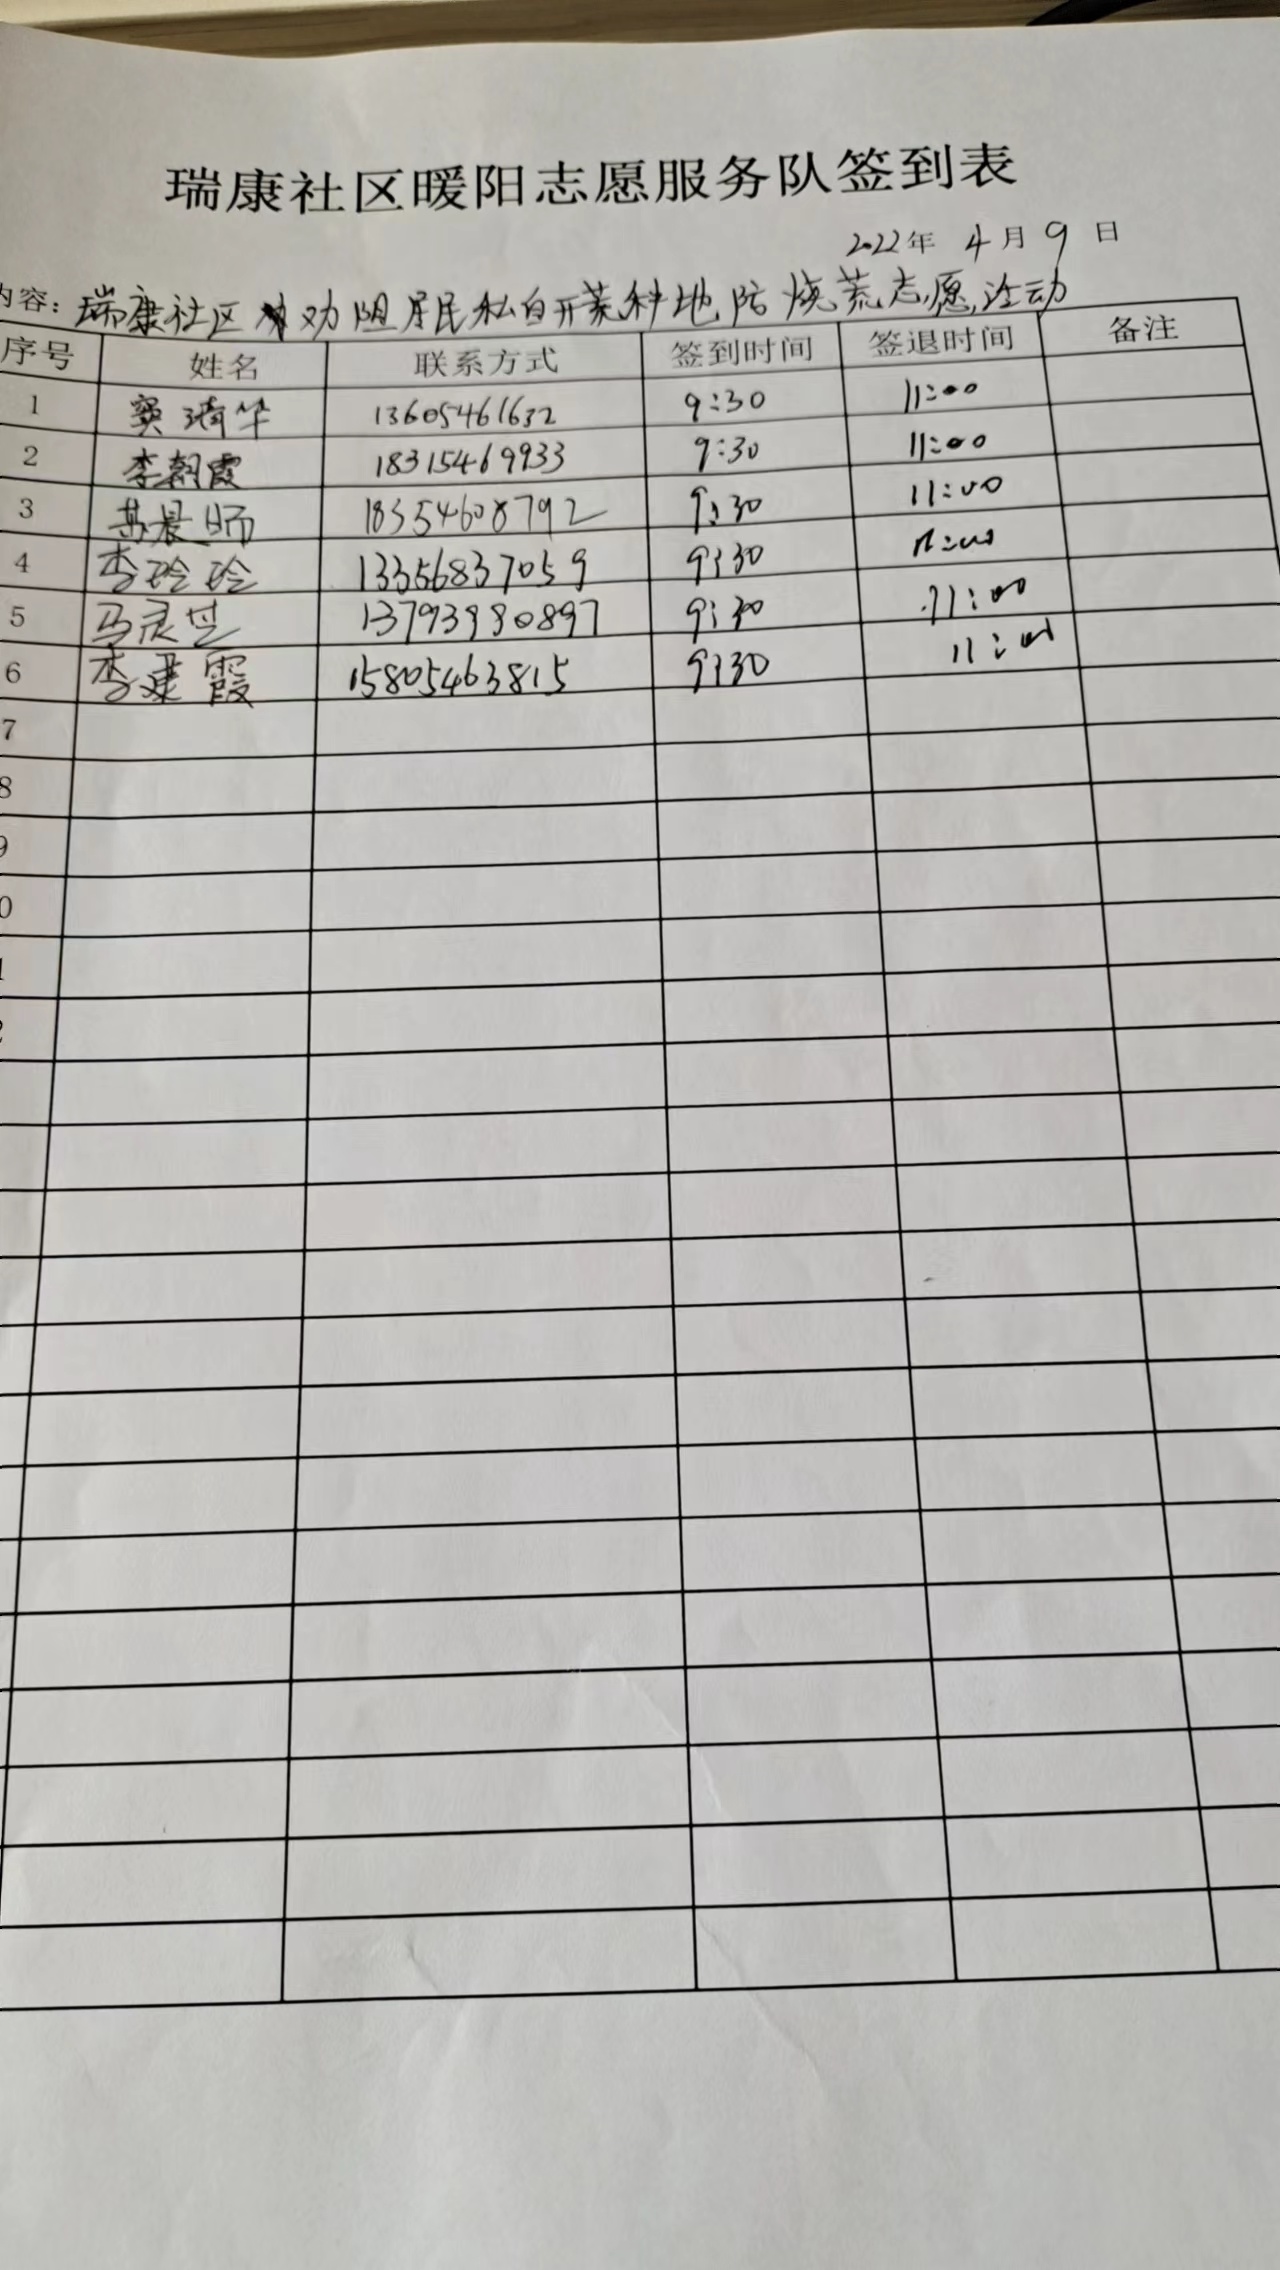 瑞康社区暖阳志愿服务队签到表
2022年 4月9日
内容：瑞康社区劝阻居民私自开荒种地防烧荒志愿活动
序号 姓名 联系方式 签到时间 签退时间 备注
1 窦清华 13605461632 9:30 11:00
2 李朝霞 18315469933 9:30 11:00
3 晨 18354608792 9:30 11:00
4 李玲玲 13356837059 9:30 11:00
5 马灵芝 13793980897 9:30 11:00
6 李建霞 15805463815 9:30 11:00
7
8
9
0
1
2